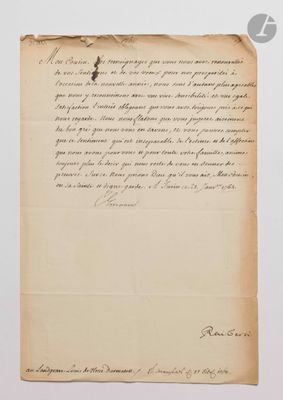 Mon Cousin. Les témoignages que vous nous avez renouvellés
de vos sentimens et de vos voeux pour nos prosperités à
l'occasion de la nouvelle année, nous sont d'autant plus agreables
que nous y reconnoissons avec une vive sensibilité et une egale
satisfaction l'interêt obligeant que vous avez toujours pris à ce qui
nous regarde. Nous nous flatons que vous jugerez aisement
du bon gré que nous vous en savons, et vous pouvez compter
que ce sentiment, qui est inseparable de l'estime et de l'affection
que nous avons pour vous et pour toute votre famille, anime
toujours plus le desir qui nous reste de vous en donner des
preuves. Sur ce nous prions Dieu qu'il vous ait, Mon Cousin,
en sa sainte et digne garde. A Turin ce 23 Janv.er 1762.
au Landgrave Louis de Hesse Darmstadt